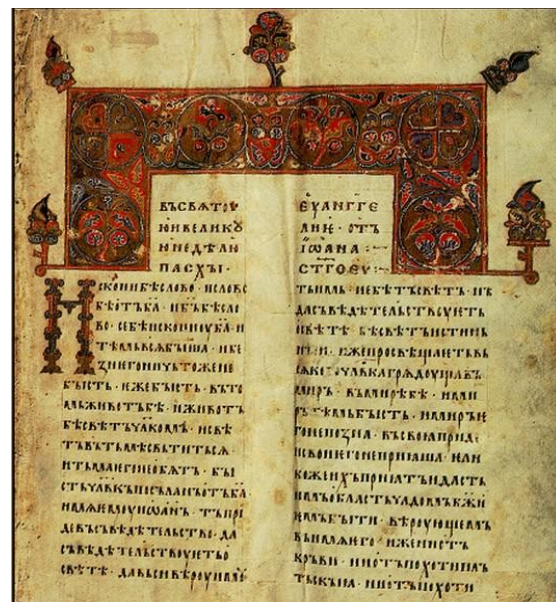 ВЪСВѦТОУ
ЮИВЕЛИКОУ
ЮНЕДѢЛЮ
ПАСХЫ·
исконибѣслово · ислово
бѣотъба · ибъбѣсло
во · себѣискониоуба · и
тѣмьвсѧбыша · ибе
знегоничьтожене
бысть · ижебысть · въто
мьживотъбѣ · иживотъ
бѣсвѣтъчлкомъ · исвѣ
тъвътьмѣсвьтитьсѧ
итьмаегонеобѧтъ · бы
стьчлвкъпосъланъотъба ·
имѧемоуиѡанъ · тъпри
девъсъвѣдѣтельство · да
съвѣдѣтельствоуѥтьо
свѣтѣ · давьсивѣроуимоу
ЕУАНГГЕ
ЛИѤ · ОТЪ
ІѠАНА
СТГОЕУ
тъимь · небѣтъсвѣтъ · нъ
дасъвѣдѣтельствоуѥть
освѣтѣ · бѣсвѣтъистинь
ныи · ижепросвѣщаѥтьвь
сѧкогочлвкагрѧдоущавъ
миръ · вьмирѣбѣ · имі
ръ тѣмьбысть · имиръѥ
гонепозна · въсвоѩприде
исвоиѥгонеприѩша · ѥли
кожеихъприѩтъидасть
имъобластьчѧдомъбжи
ѥмъбыти · вѣроующемъ
въимѧѥго · иженеотъ
кръви · ниотъпохотипло
тьскыѩ · ниотъпохоти